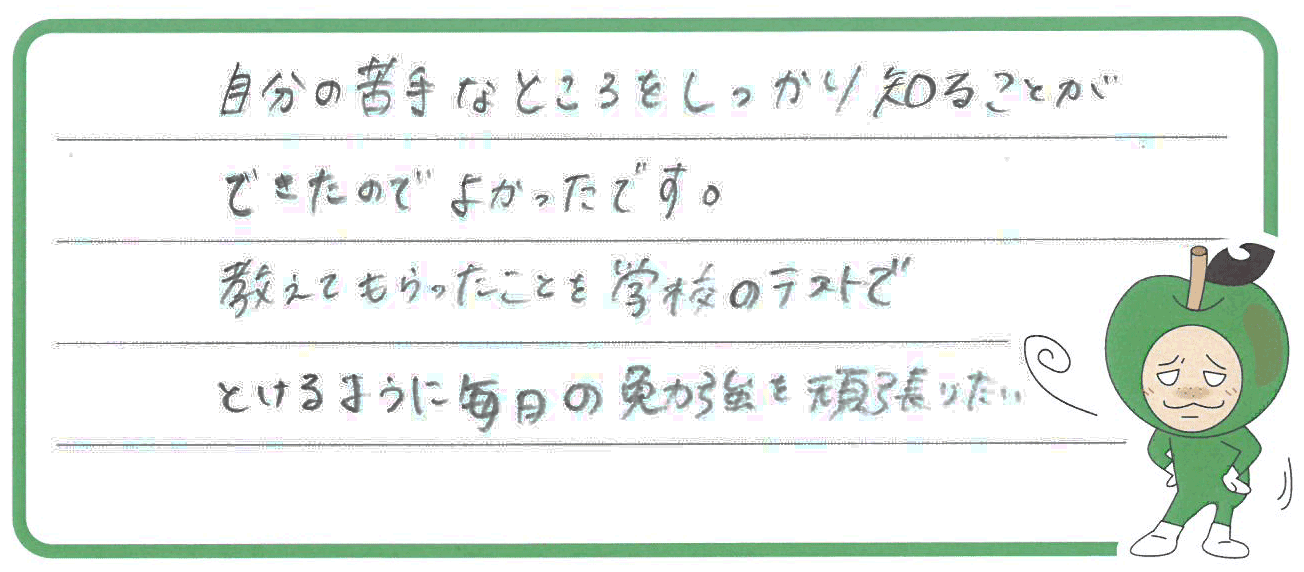 自分の苦手なところをしっかり知ることが
できたのでよかったです。
教えてもらったことを学校のテストで
とけるように毎日の勉強を頑張りたい